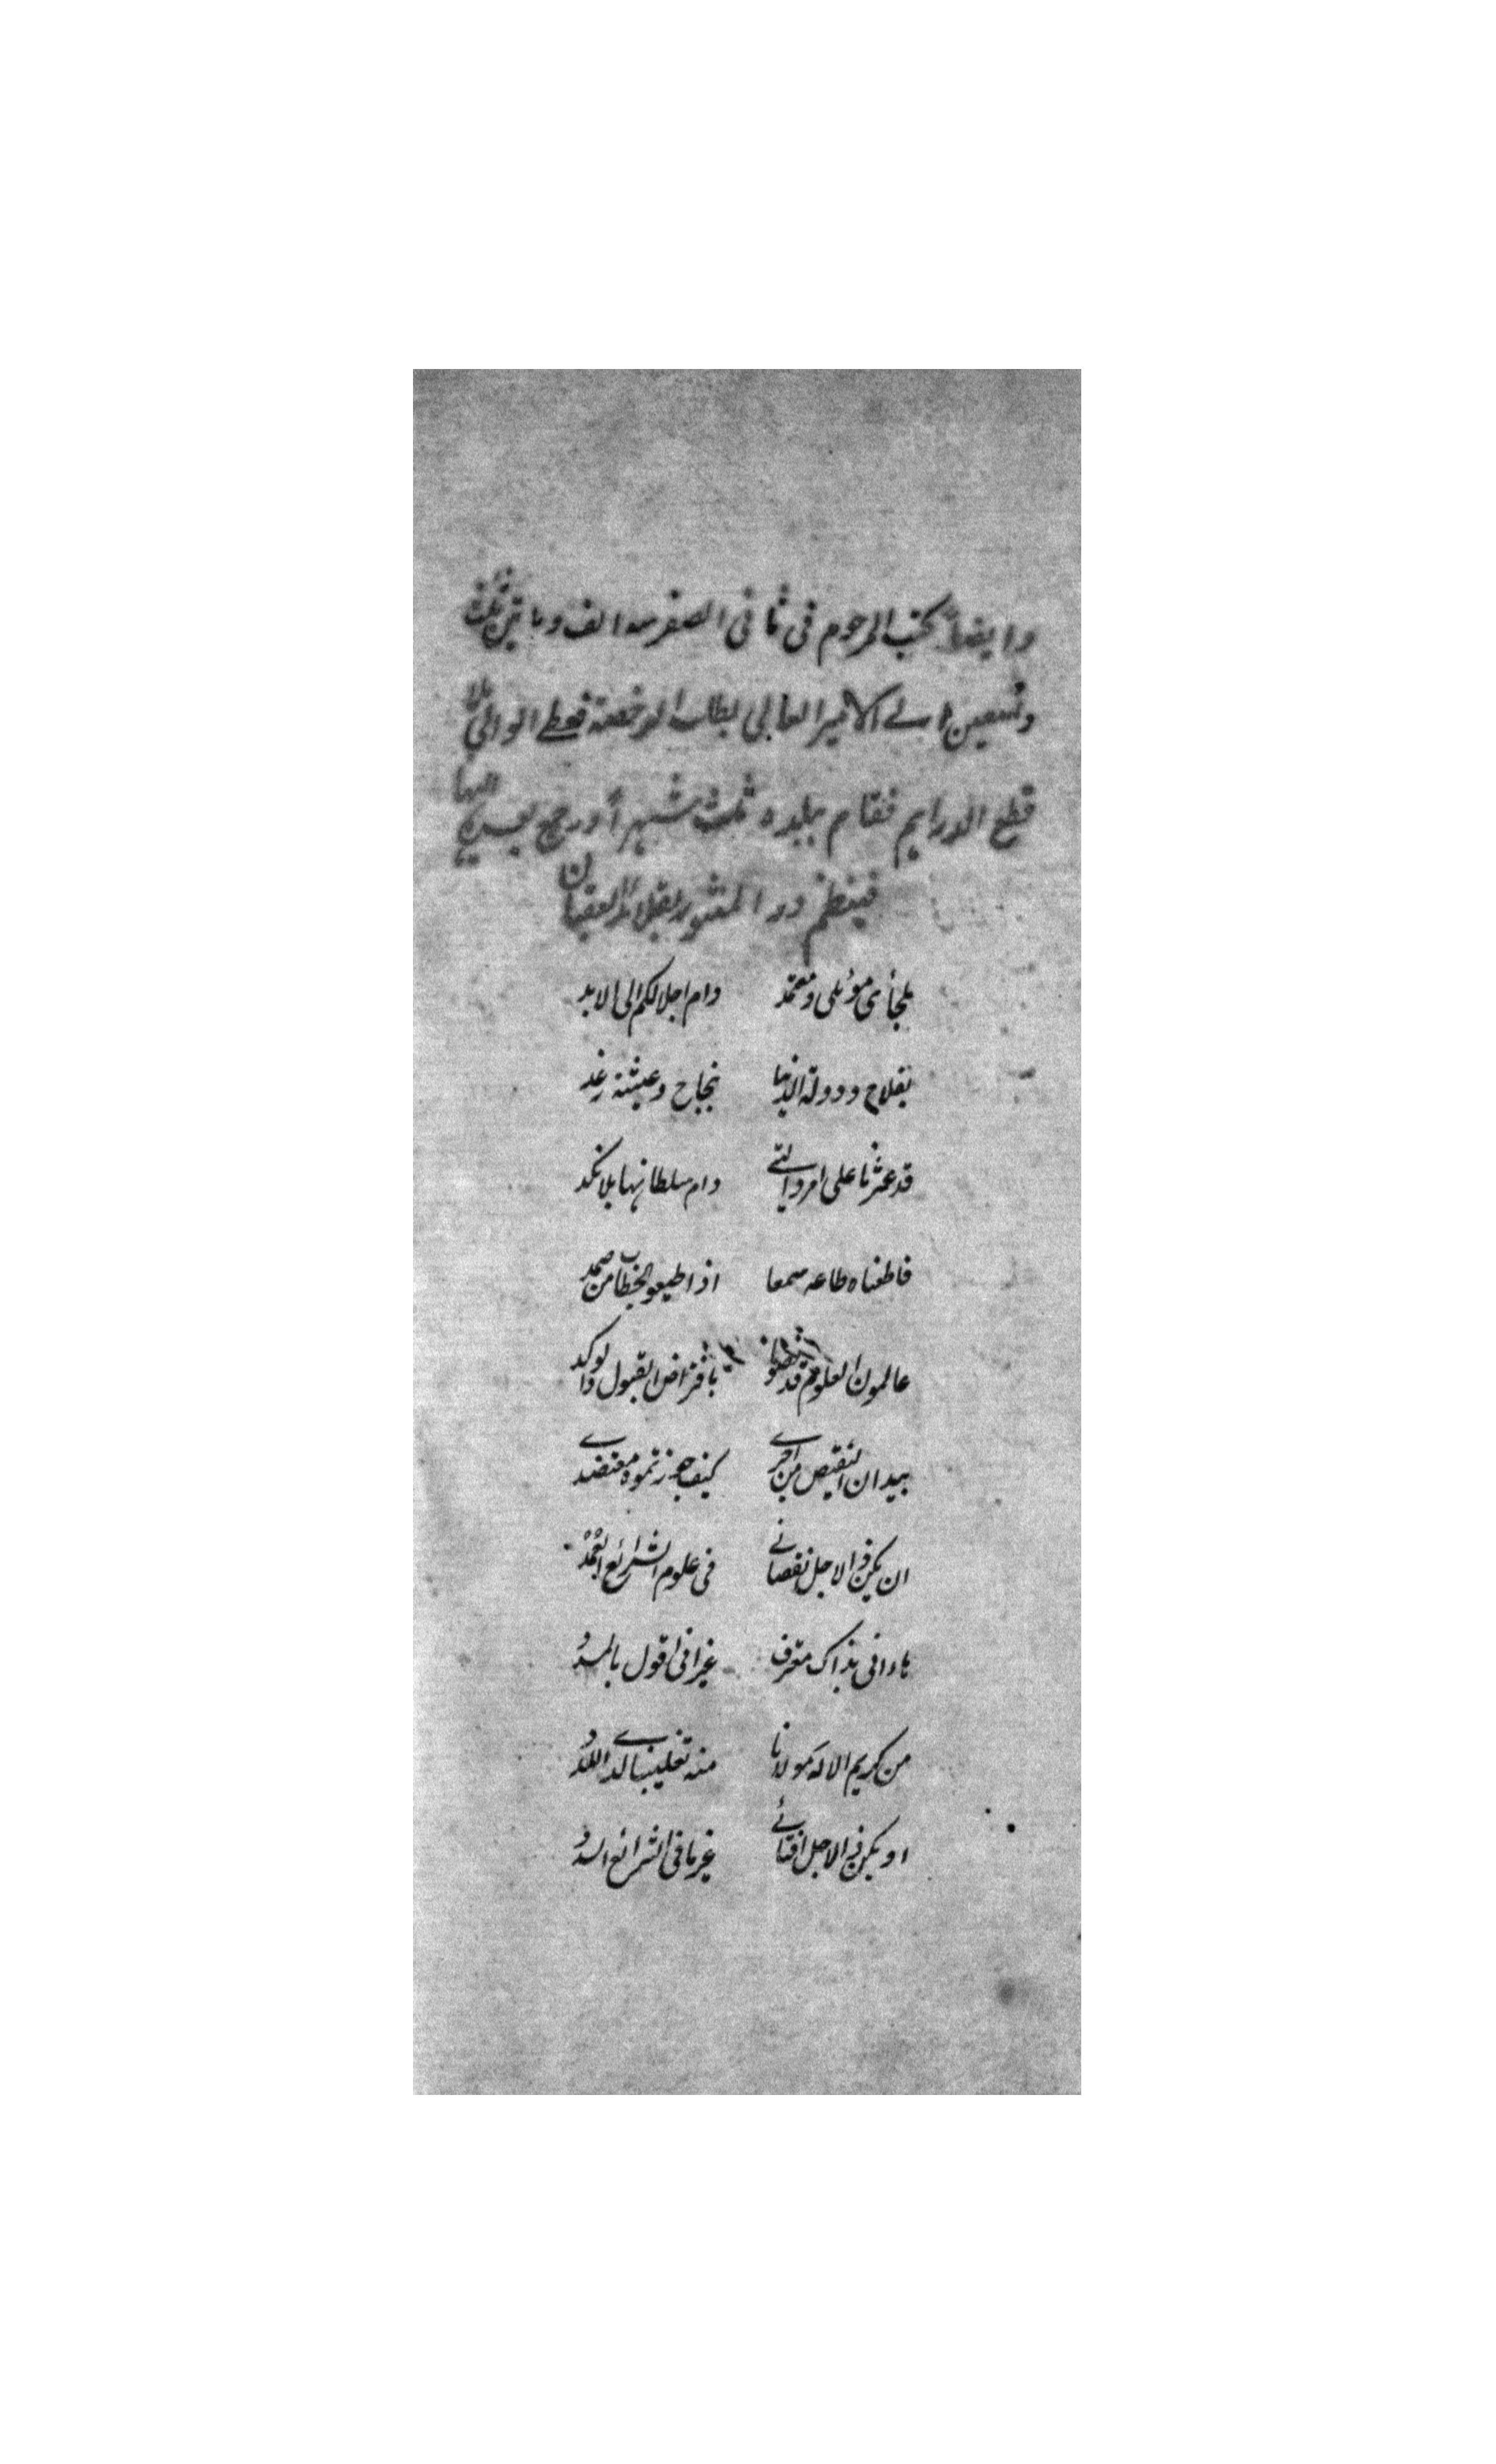 وايضاً كتب المرحوم فى ثانى الصفر سنه الف و ماتين ثلث
وتسعين الے الامير العالى بطلب الرخصة فعطے الوالى بلا
قطع الدراهم فقام ببلده ثلث شهراً ورجع بعده اليها
فينظم در المنثور بقلائد العقيان
ملجأى موئلى ومعتمد دام اجلالكم الى الابد
بفلاح و دولة الدنيا نجاح وعيشة رغد
قد عثرنا على امر والتے دام سلطانها بلا نكد
فاطعناه طاعه سمعا اذ اطيعو الخطاب من صمد
عالمون العلوم قد بافتراض القبول والوكد
بيد ان التقيص من اجرے كيف جوزتموه معتضدے
ان يكن ذا لاجل نقصانے فى علوم الشرائع العمد
هاء انى بذاك معترف غير انى اقول بالمدد
من كريم الاله مولانا منه تغليبنا لدے اللدد
او يكن ذا لاجل افتائے غير ما فى الشرائع السدد